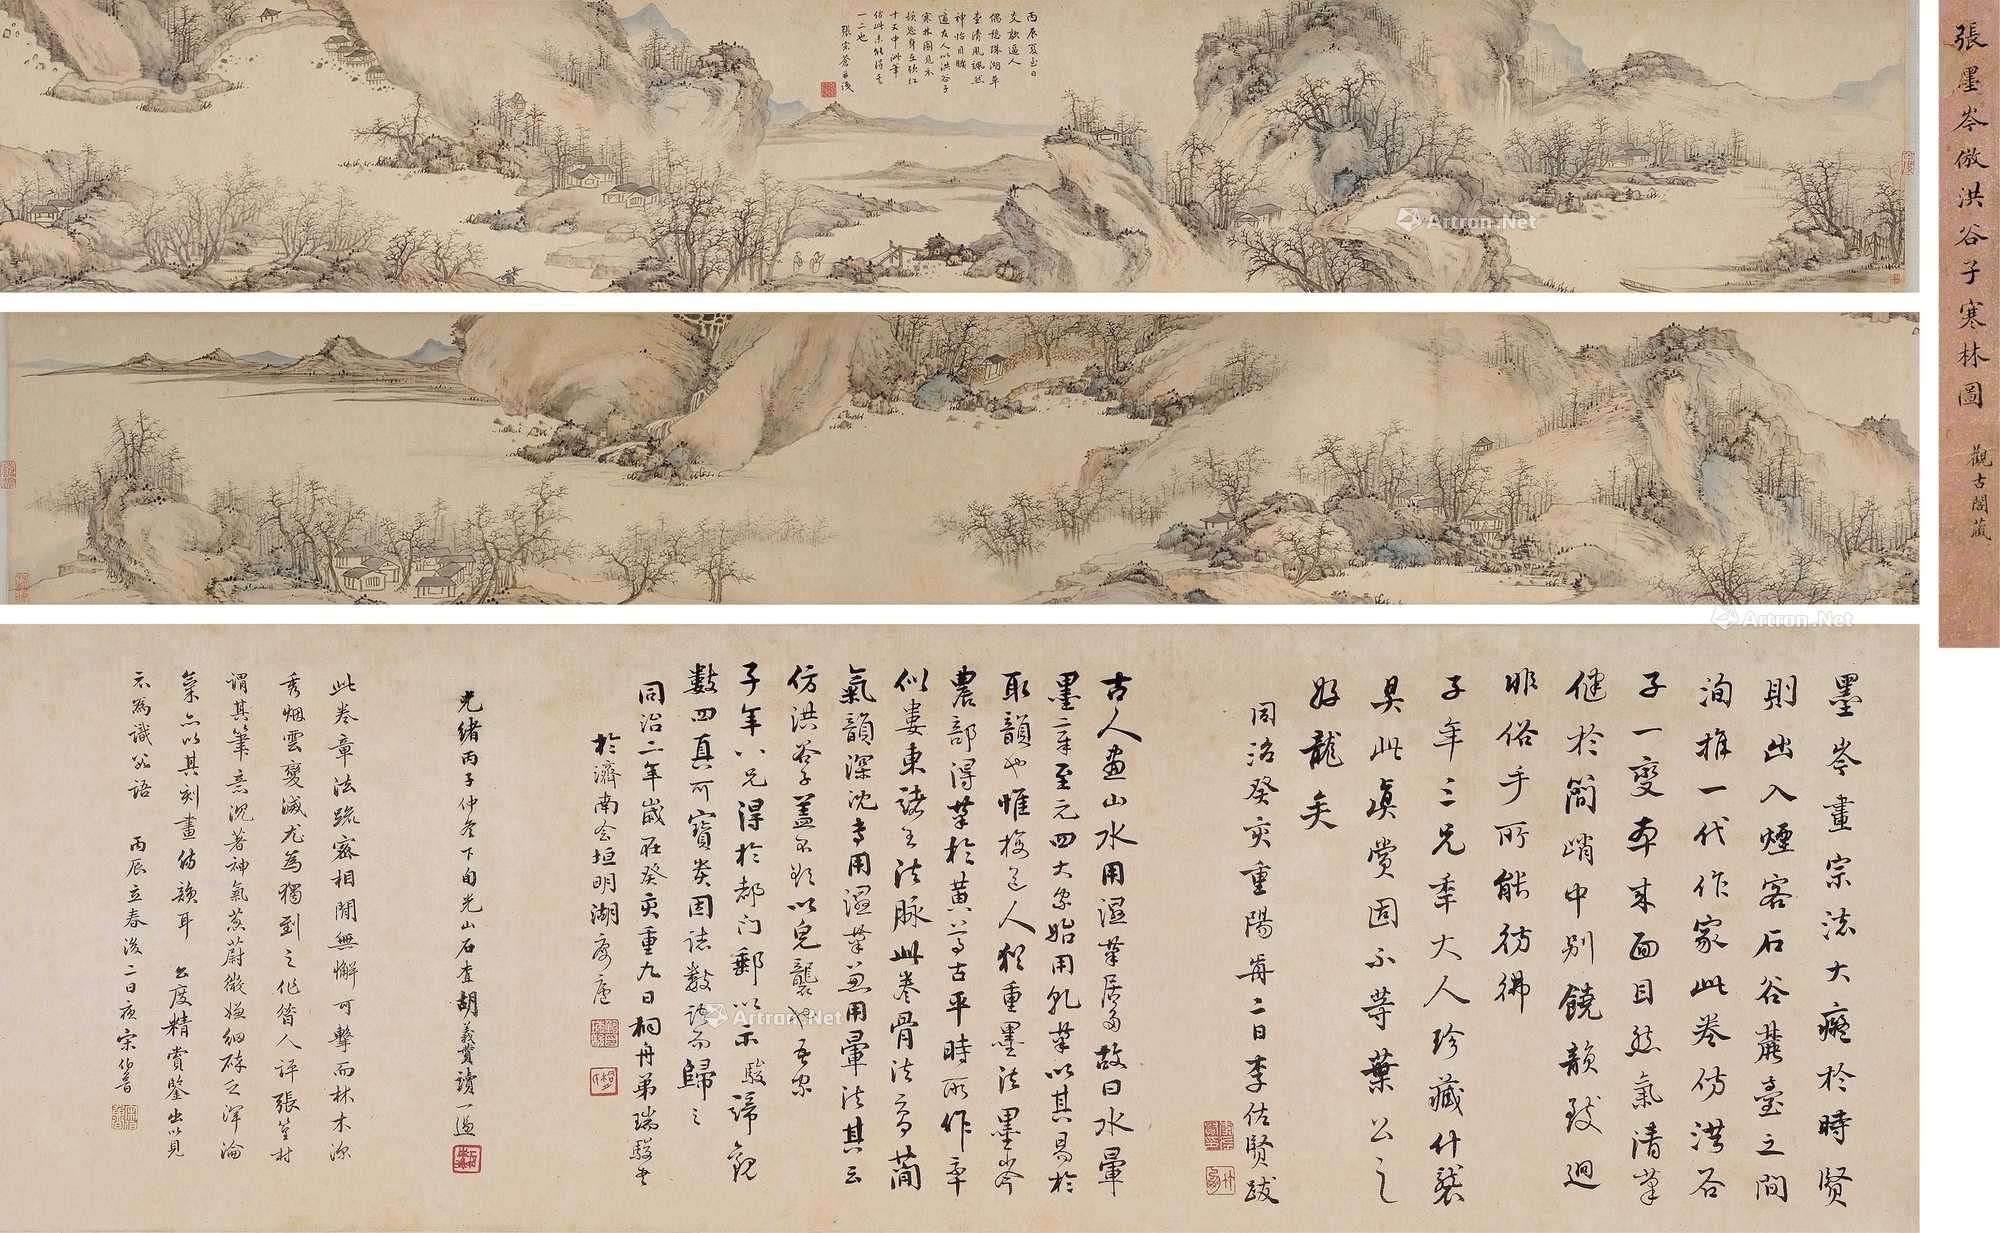 張墨岑倣洪谷子寒林圖
觀古閣藏
丙辰夏至日
支訪逋人
偶憩珠湖草
堂清風颯然
神怡目曠
適友人以洪谷子
寒林圖見示
恍忽身在殘江
十丈中漫筆
仿此未能得其
一二也
張宗蒼並識
墨岑畫宗法大癡於時賢
則出入煙客石谷麓臺之間
洵推一代作家此卷仿洪谷
子一變本來面目然氣清筆
健於簡峭中別饒韻致迥
非俗手所能彷彿
子年三兄年大人珍藏什襲
具此真賞固不等葉公之
好龍矣
同治癸亥重陽前二日李佐賢跋
古人畫山水用濕筆居多故曰水暈
墨章至元四大家始用乾筆以其易於
取韻也惟梅道人猶重墨法墨岑
農部得筆於黃尊古平時所作率
似婁東諸王法脈此卷骨法高簡
氣韻深沈專用濕筆兼用暈法其云
仿洪谷子蓋不欲以皃襲也吾家
子年八兄得於都門郵以示駿諦觀
數四真可寶矣因誌數語而歸之
同治二年歲在癸亥重九日桐舟弟瑞駿書
於濟南會垣明湖寄廬
光緒丙子仲冬下旬光山石查胡義贊讀一過
此卷章法疏密相間無懈可擊而林木深
秀烟雲變滅尤為獨到之作昔人評張篁村
謂其筆意沉著神氣葱蔚微嫌細碎乏渾淪
氣亦以其刻畫傷韻耳 公度精賞鑒出以見
示為識數語 丙辰立春後二日夜宗伯魯
Artron.Net
Artron.Net
Artron.Net
Artron.Net